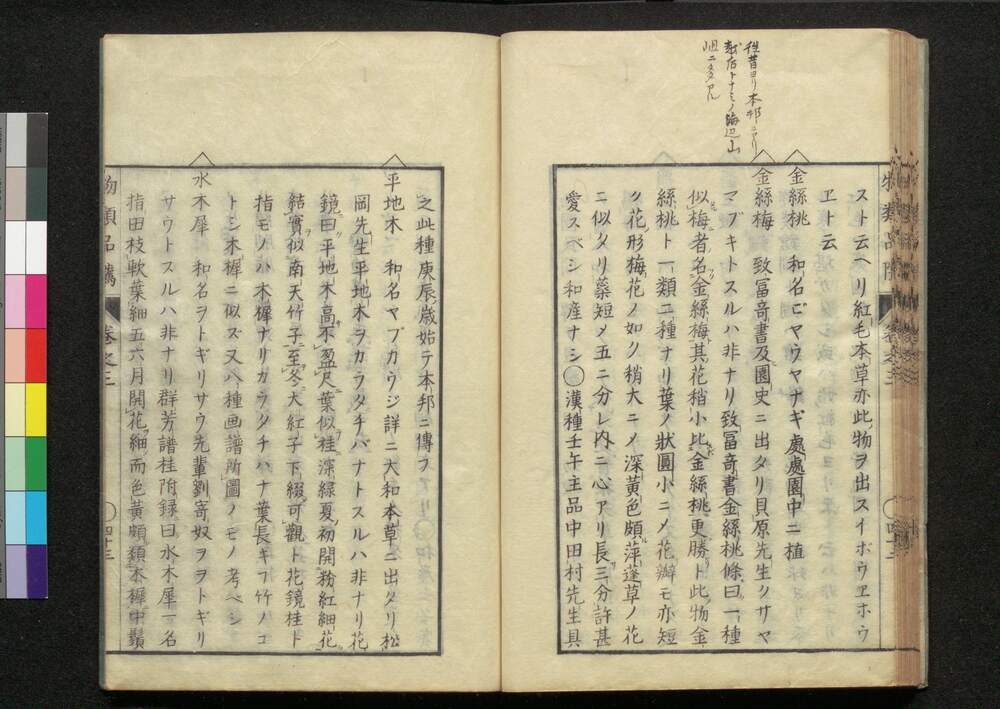 往昔ヨリ本邦ニアリ
越后トナミノ海辺山
岨ニタタアル
スト云ヘリ紅毛本草亦此物ヲ出スイボウヱホウ
ヱト云
金絲桃 和名ビヤウヤナギ處處園中ニ植
金絲梅 致冨奇書及園史ニ出タリ貝原先生クサヤ
マブキトスルハ非ナリ致冨奇書金絲桃條曰一種
似梅者名金絲梅其花稍小此金絲桃更勝ト此物金
絲桃ト一類二種ナリ葉ノ狀圓小ニメ花瓣モ亦短
ク花形梅花ノ如ク稍大ニメ深黃色頗萍蓬草ノ花
ニ似タリ蘂短メ五ニ分レ内ニ心アリ長三分許甚
愛スベシ和産ナシ○漢種壬午主品中田村先生具
物類品隲 卷之三 四十三
之此種庚辰歲始テ本邦ニ傳フ
平地木 和名ヤブカウジ詳ニ大和本草ニ出タリ松
岡先生平地木ヲカラタチバナトスルハ非ナリ花
鏡曰平地木高不盈尺葉似桂深綠夏初開粉紅細花
結實似南天竹子至冬大紅子下綴可觀ト花鏡桂ト
指モノハ木樨ナリカラタチハナ葉長キフ竹ノコ
トシ木樨ニ似ズ又八種画譜所圖ノモノ考ベシ
水木犀 和名ヲトギリサウ先輩劉寄奴ヲヲトギリ
サウトスルハ非ナリ群芳譜桂附録曰水木犀一名
指田枝軟葉細五六月開花細而色黃頗類木樨中鬚
物類品隲 卷之三 四十三